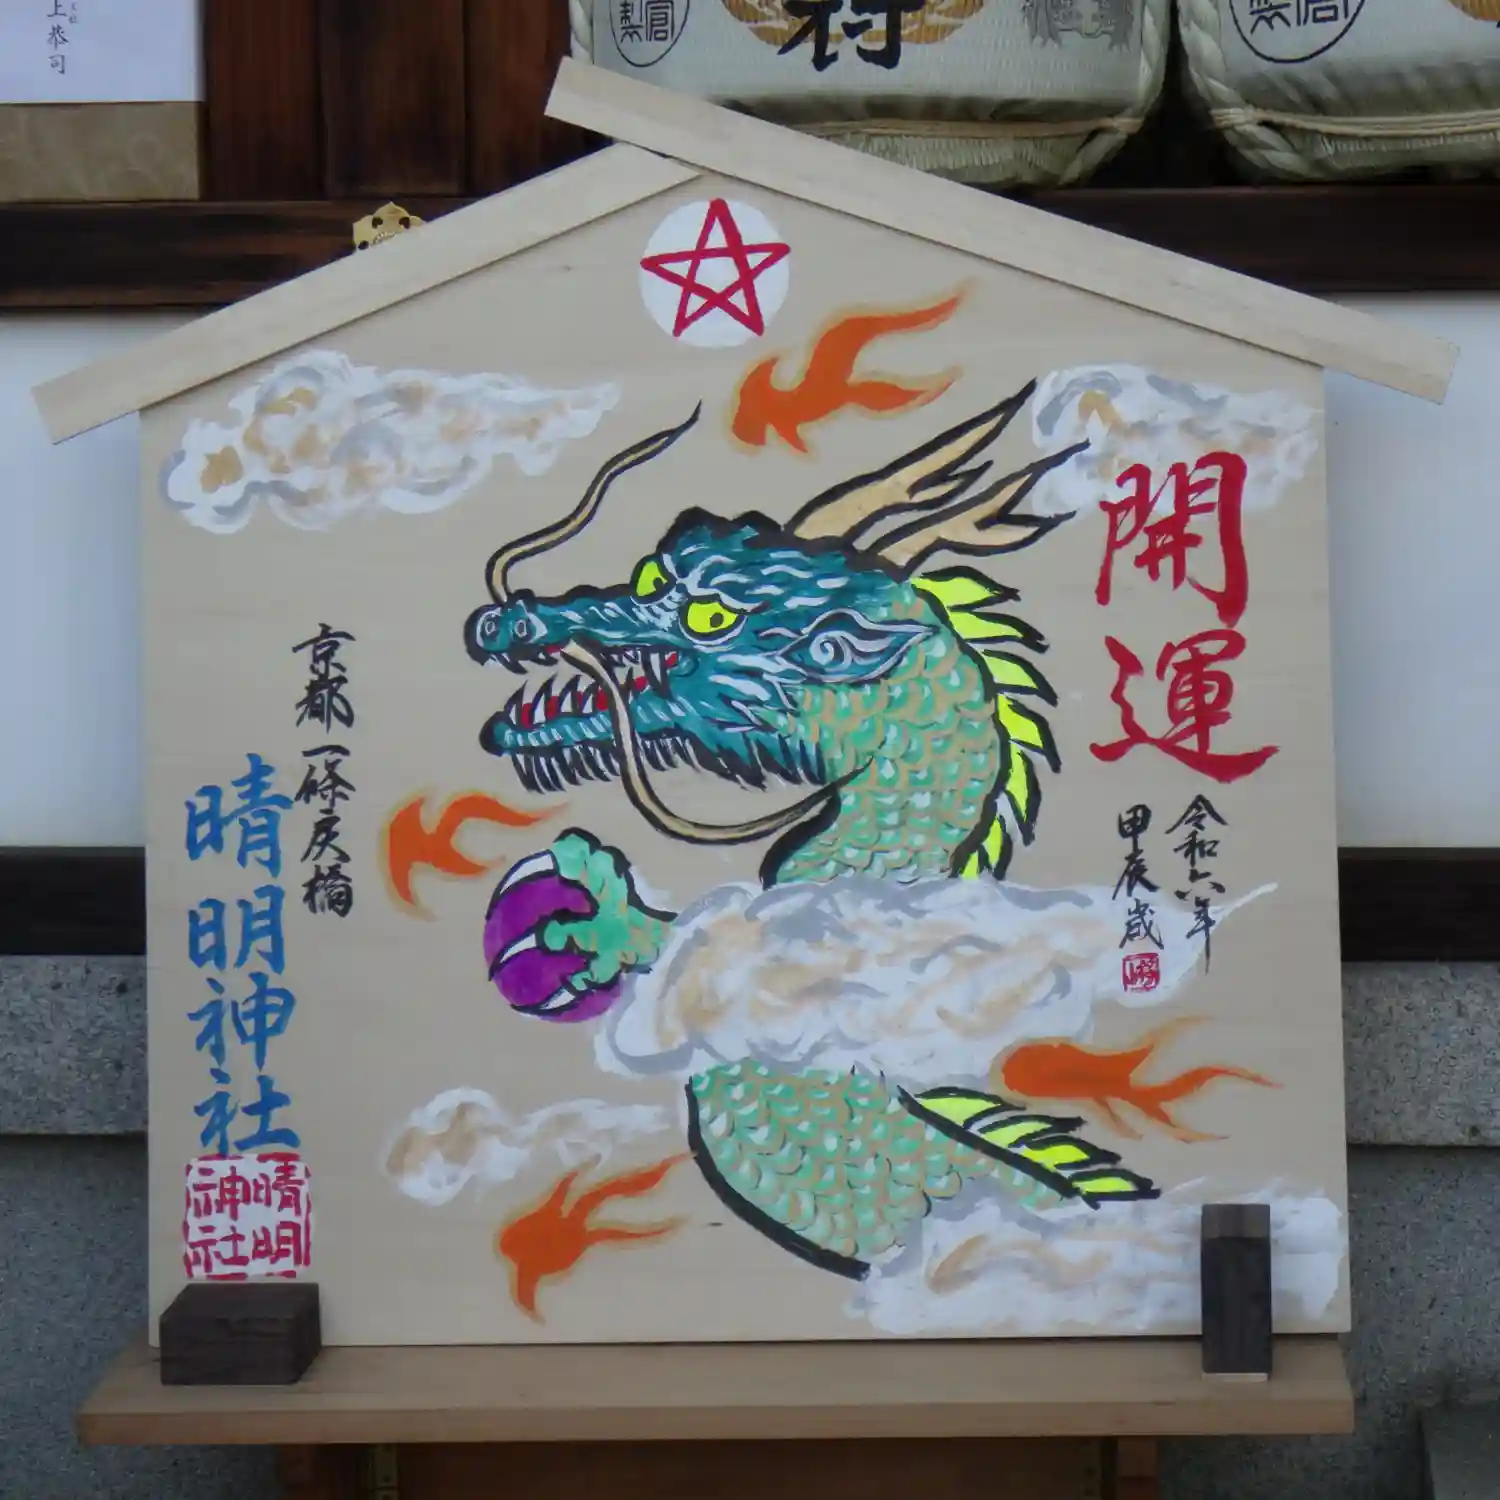 開運
令和六年
甲辰歳
京都一條戻橋
晴明神社
晴明
神社
上恭司